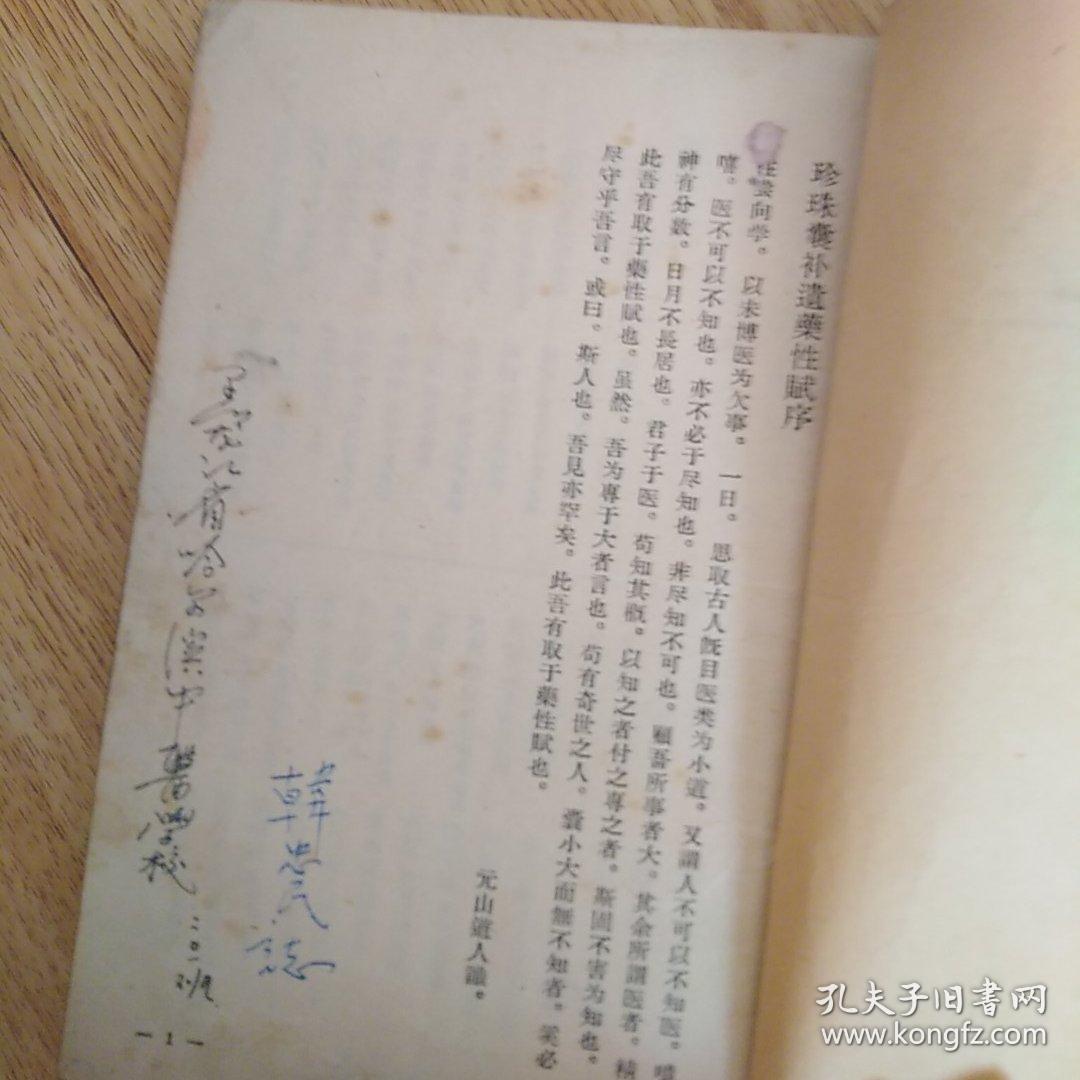 珍珠囊补遺藥性賦序
向学。以未博医为欠事。一日。思取古人旣目医类为小道。又謂人不可以不知医。噫
嘻。医不可以不知也。亦不必于尽知也。非尽知不可也。顧吾所事者大。其余所謂医者。精
神有分数。日月不長居也。君子于医。苟知其槪。以知之者付之專之者。斯固不害为知也。
此吾有取于藥性賦也。虽然。吾为專于大者言也。苟有奇世之人。囊小大而無不知者。奚必
尽守乎吾言。或曰。斯人也。吾見亦罕矣。此吾有取于藥性賦也。
元山道人識。
韓忠民誌
黑龙江省哈尔滨中醫學校 二〇一班
— 1 —
孔夫子旧书网
www.kongfz.com